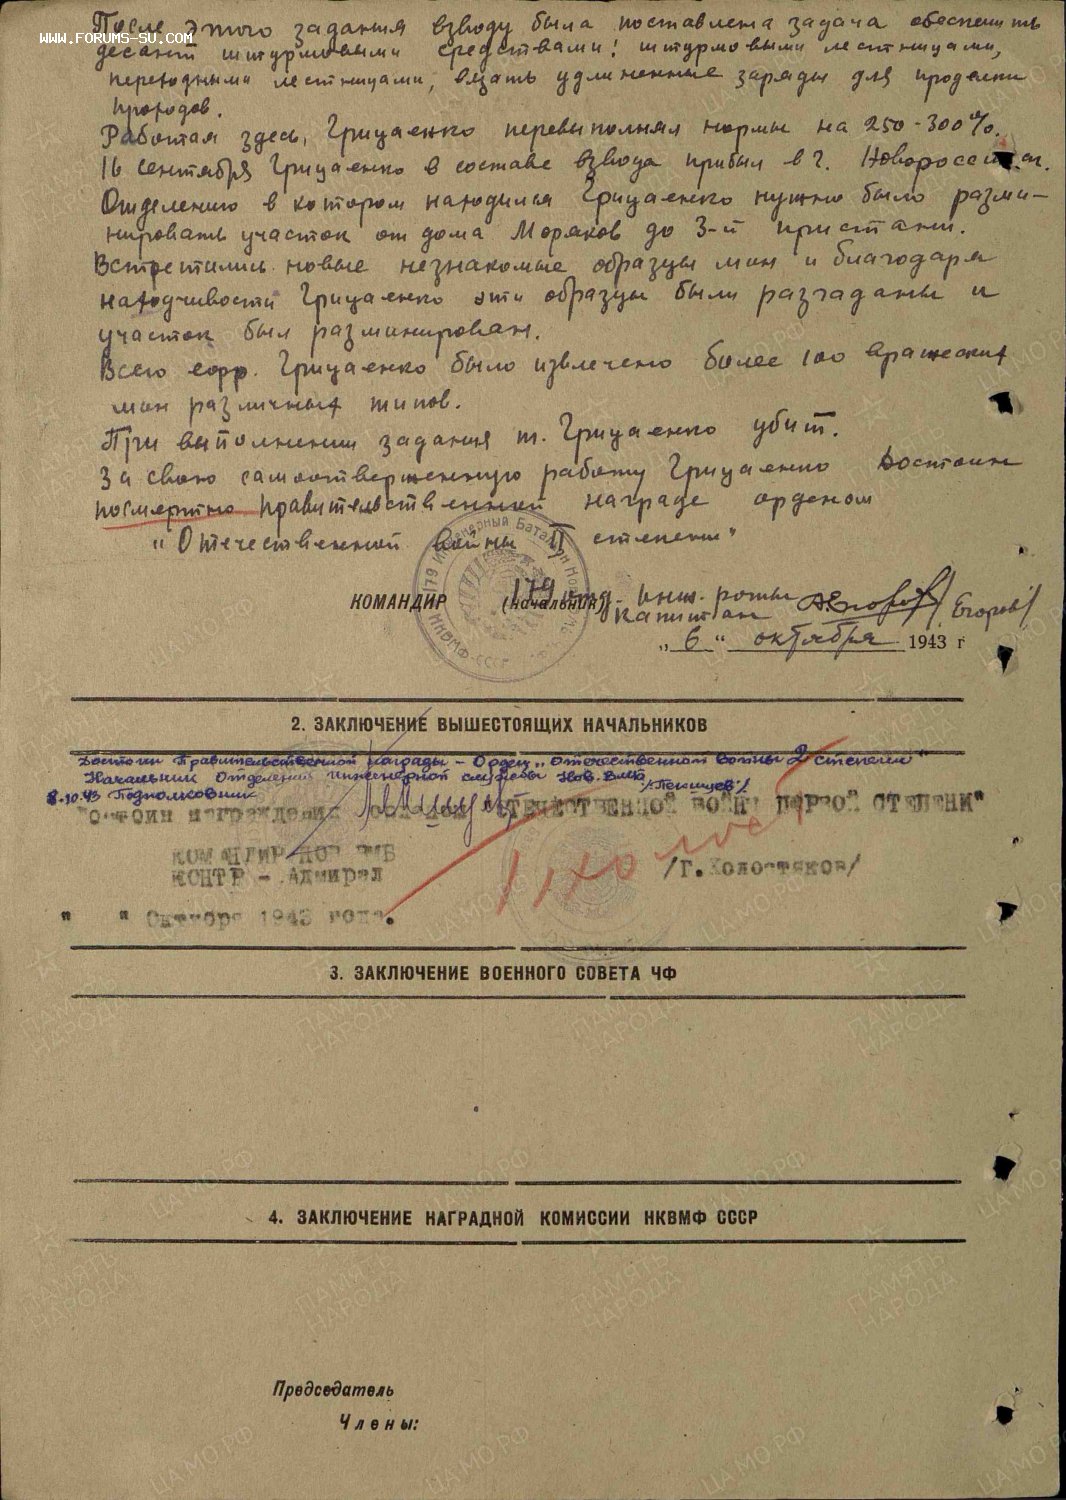 После этого задания взводу была поставлена задача обеспечить
WWW.FORUMS-SU.COM
десант штурмовыми средствами: штурмовыми лестницами,
переходными лестницами, вязать удлиненные заряды для проделки
проходов.
Работая здесь, Грицаенко перевыполнял нормы на 250-300%.
16 сентября Грицаенко в составе взвода прибыл в г. Новороссийск.
Отделению в котором находился Грицаенко нужно было разми-
нировать участок от дома Моряков до 3-й пристани.
Встретились новые незнакомые образцы мин и благодаря
находчивости Грицаенко эти образцы были разгаданы и
участок был разминирован.
Всего Грицаенко было извлечено более 100 вражеских
мин различных типов.
При выполнении задания т. Грицаенко убит.
За свою самоотверженную работу Грицаенко достоин
посмертно правительственной награде орденом
„Отечественной войны II степени"
КОМАНДИР (начальник) 179 отд. инж. роты
капитан /Егоров/
„6" октября 1943 г
2. ЗАКЛЮЧЕНИЕ ВЫШЕСТОЯЩИХ НАЧАЛЬНИКОВ
Достоин Правительственной награды - Орден „Отечественной войны 2 степени"
Начальник Отделения инженерной службы Нов. ВМБ
8.10.43 Подполковник
достоин награждения орденом "ОТЕЧЕСТВЕННОЙ ВОЙНЫ ПЕРВОЙ СТЕПЕНИ"
КОМАНДИР НОВ ВМБ
КОНТР - Адмирал /Г.Холостяков/
" " Октября 1943 года.
3. ЗАКЛЮЧЕНИЕ ВОЕННОГО СОВЕТА ЧФ
4. ЗАКЛЮЧЕНИЕ НАГРАДНОЙ КОМИССИИ НКВМФ СССР
Председатель
Члены: